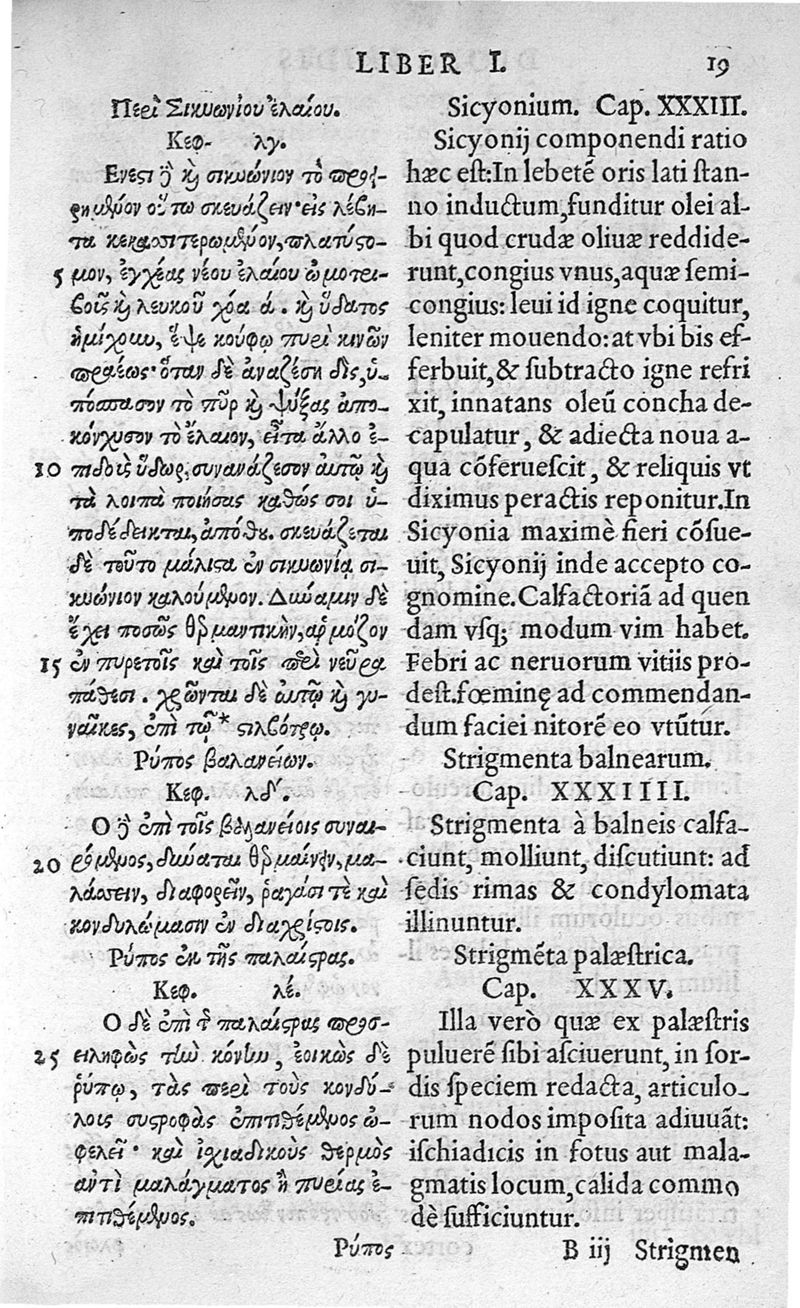 LIBER I. 19
Περὶ Σικυωνίου ἐλαίου.
Κεφ. λγ.
Ενεστι δὲ καὶ σικυώνιον τὸ προει-
ρημένον οὕτω σκευάζειν· εἰς λέβη-
τα κεκασσιτερωμένον, πλατύστο-
5 μον, ἐγχέας νέου ἐλαίου ὠμοτρι-
βοῦς καὶ λευκοῦ χόα ά. καὶ ὕδατος
ἡμίχουν, ἕψε κούφῳ πυρὶ κινῶν
πραέως· ὅταν δὲ ἀναζέσῃ δὶς, ὑ-
πόσπασον τὸ πῦρ καὶ ψύξας ἀπο-
κόνχισον τὸ ἔλαιον, εἶτα ἄλλο ἐ-
10 πιδοὺς ὕδωρ, συνανάζεσον αὐτῷ καὶ
τὰ λοιπὰ ποιήσας καθώς σοι ὑ-
ποδέδεικται, ἀπόθου. σκευάζεται
δὲ τοῦτο μάλιστα ἐν σικυωνίᾳ σι-
κυώνιον καλούμενον. Δύναμιν δὲ
ἔχει ποσῶς θερμαντικὴν, ἁρμόζον
15 ἐν πυρετοῖς καὶ τοῖς περὶ νεῦρα
πάθεσι. χρῶνται δὲ αὐτῷ καὶ γυ-
ναῖκες, ἐπὶ τῷ * στιλβότρῳ.
Ρύπος βαλανείων.
Κεφ. λδ.
Ο δὲ ἐπὶ τοῖς βαλανείοις συναι-
20 ρόμενος, δύναται θερμαίνειν, μα-
λάσσειν, διαφορεῖν, ῥαγάσι τὲ καὶ
κονδυλώμασιν ἐν διαχρίστοις.
Ρύπος ἐκ τῆς παλαίστρας.
Κεφ. λέ.
Ο δὲ ἐπὶ τῆς παλαίστρας προσ-
25 ειληφὼς τὴν κόνιν, ἐοικὼς δὲ
ῥύπῳ, τὰς περὶ τοὺς κονδύ-
λοις συστροφὰς ἐπιτιθέμενος ὠ-
φελεῖ· καὶ ἰχιαδικοὺς θερμὸς
ἀντὶ μαλάγματος ἢ πυρίας ἐ-
πιτιθέμενος.
Ρύπος
Sicyonium. Cap. XXXIII.
Sicyonij componendi ratio
hæc est: In lebetē oris lati stan-
no inductum, funditur olei al-
bi quod crudæ oliuæ reddide-
runt, congius vnus, aquæ semi-
congius: leui id igne coquitur,
leniter mouendo: at vbi bis ef-
ferbuit, & subtracto igne refri
xit, innatans oleū concha de-
capulatur, & adiecta noua a-
qua cōferuescit, & reliquis vt
diximus peractis reponitur. In
Sicyonia maximè fieri cōsue-
uit, Sicyonij inde accepto co-
gnomine. Calfactoriā ad quen
dam vsq; modum vim habet.
Febri ac neruorum vitiis pro-
dest. fœminę ad commendan-
dum faciei nitorē eo vtūtur.
Strigmenta balnearum.
Cap. XXXIIII.
Strigmenta à balneis calfa-
ciunt, molliunt, discutiunt: ad
sedis rimas & condylomata
illinuntur.
Strigmēta palæstrica.
Cap. XXXV.
Illa verò quæ ex palæstris
puluerē sibi asciuerunt, in sor-
dis speciem redacta, articulo-
rum nodos imposita adiuuāt:
ischiadicis in fotus aut mala-
gmatis locum, calida commo
dè sufficiuntur.
B iij Strigmen